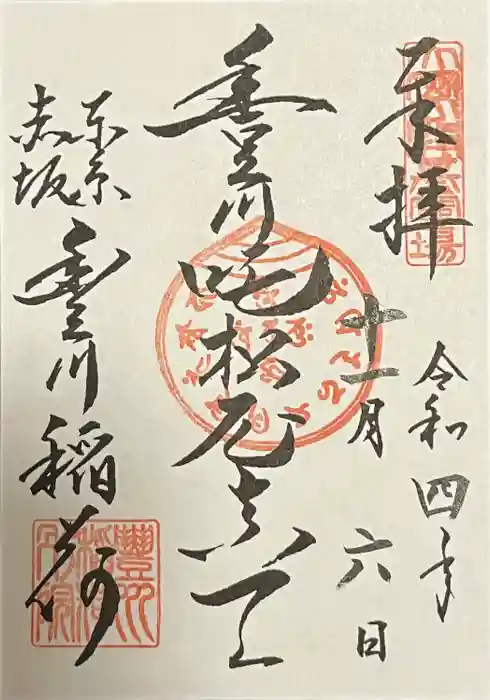 奉拝
令和四年
十一月
六日
豊川吒枳尼真天
東京
赤坂
豊川稲荷